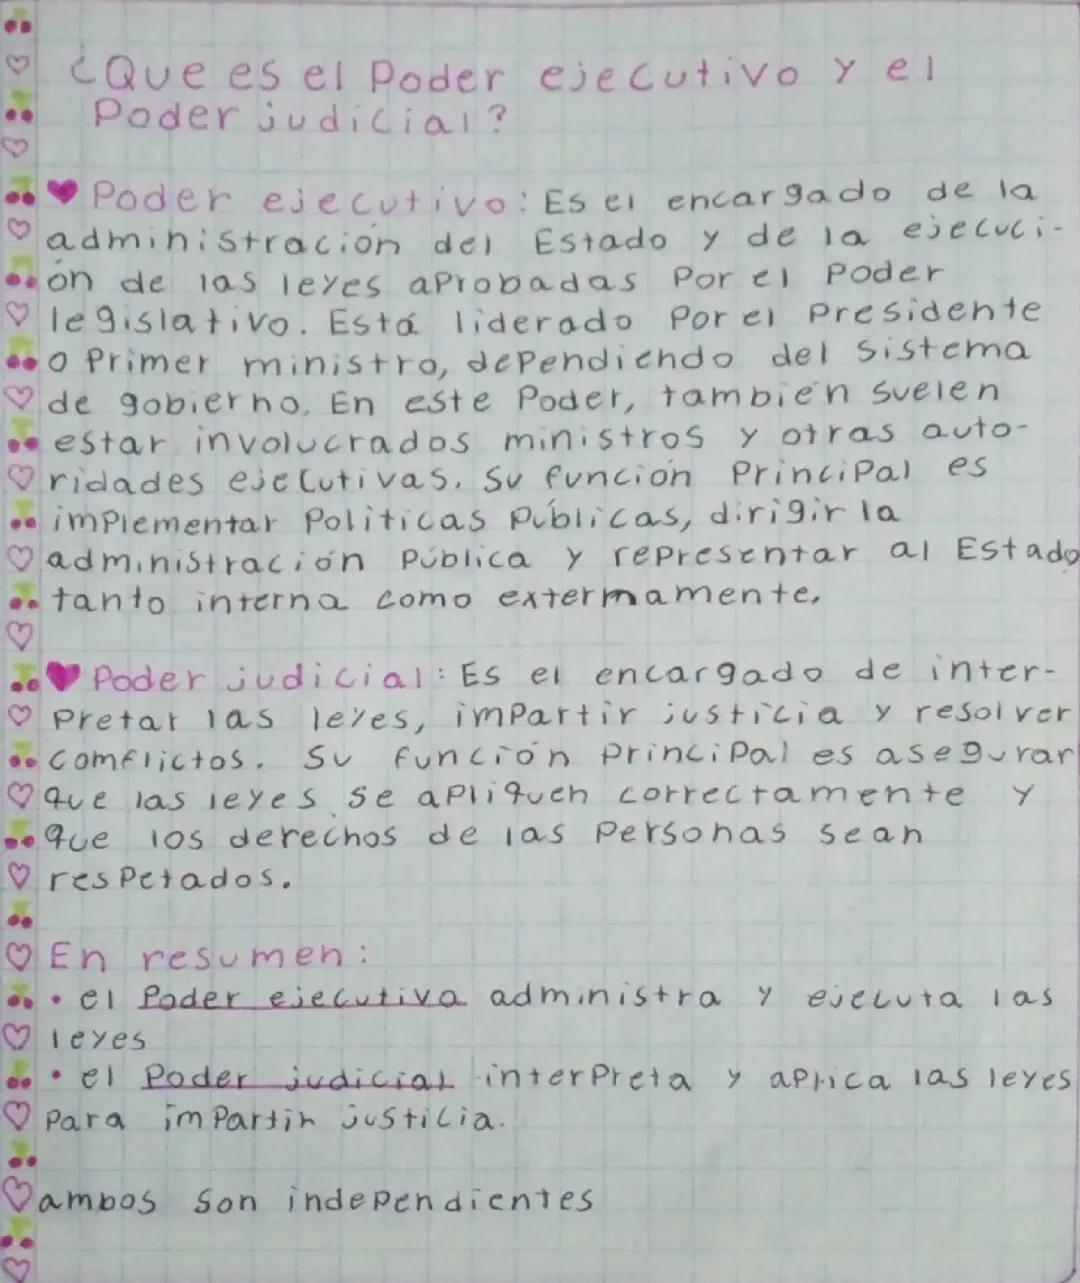 ¿Que es el Poder ejecutivo y el
Poder judicial?
Poder ejecutivo: Es el encargado de la
administración del Estado y de la ejecuci-
ón de las leyes aprobadas Por el Poder
legislativo. Está liderado Por el Presidente
o Primer ministro, dependiendo del sistema
de gobierno. En este Poder, también suelen
estar involucrados ministros y otras auto-
ridades ejecutivas. Su función Principal es
implementar Políticas Públicas, dirigir la
administración Pública y representar al Estado
tanto interna como extermamente.
Poder judicial: Es el encargado de inter-
Pretar las leyes, impartir justicia y resolver
comflictos. Su función Principal es asegurar
que las leyes se apliquen correctamente y
que los derechos de las Personas sean
respetados.
En resumen:
• el Poder ejecutivo administra y ejecuta las
leyes
• el Poder judicial interpreta y aplica las leyes
Para impartir justicia.
ambos son independientes